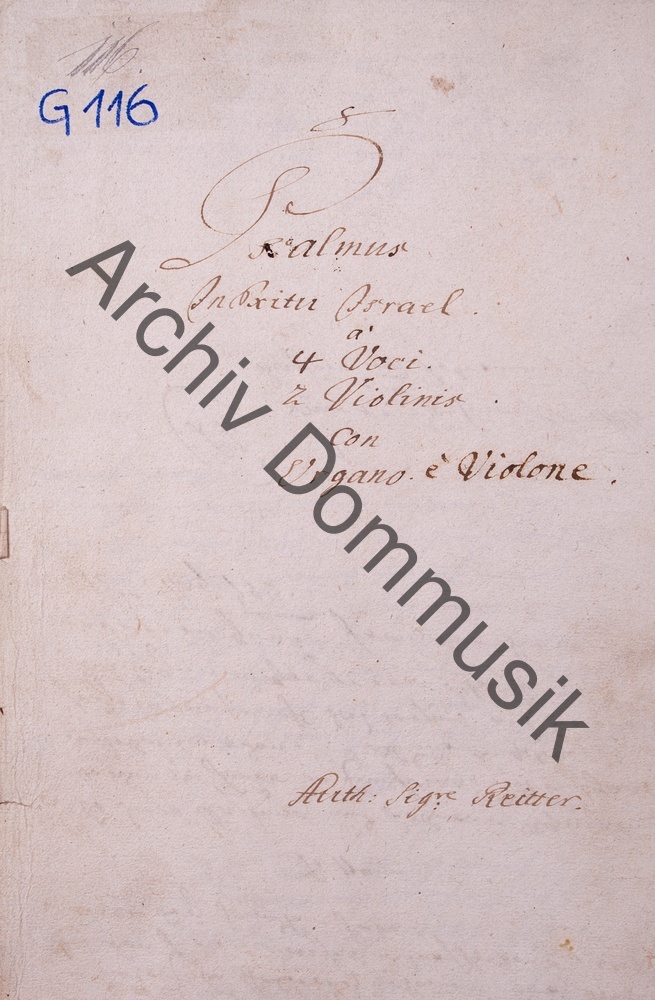 116.
G 116
Psalmus
In Exitu Israel.
à
4 Voci.
2 Violinis.
Con
Organo è Violone.
Auth: Sigre Reitter.
Archiv Dommusik